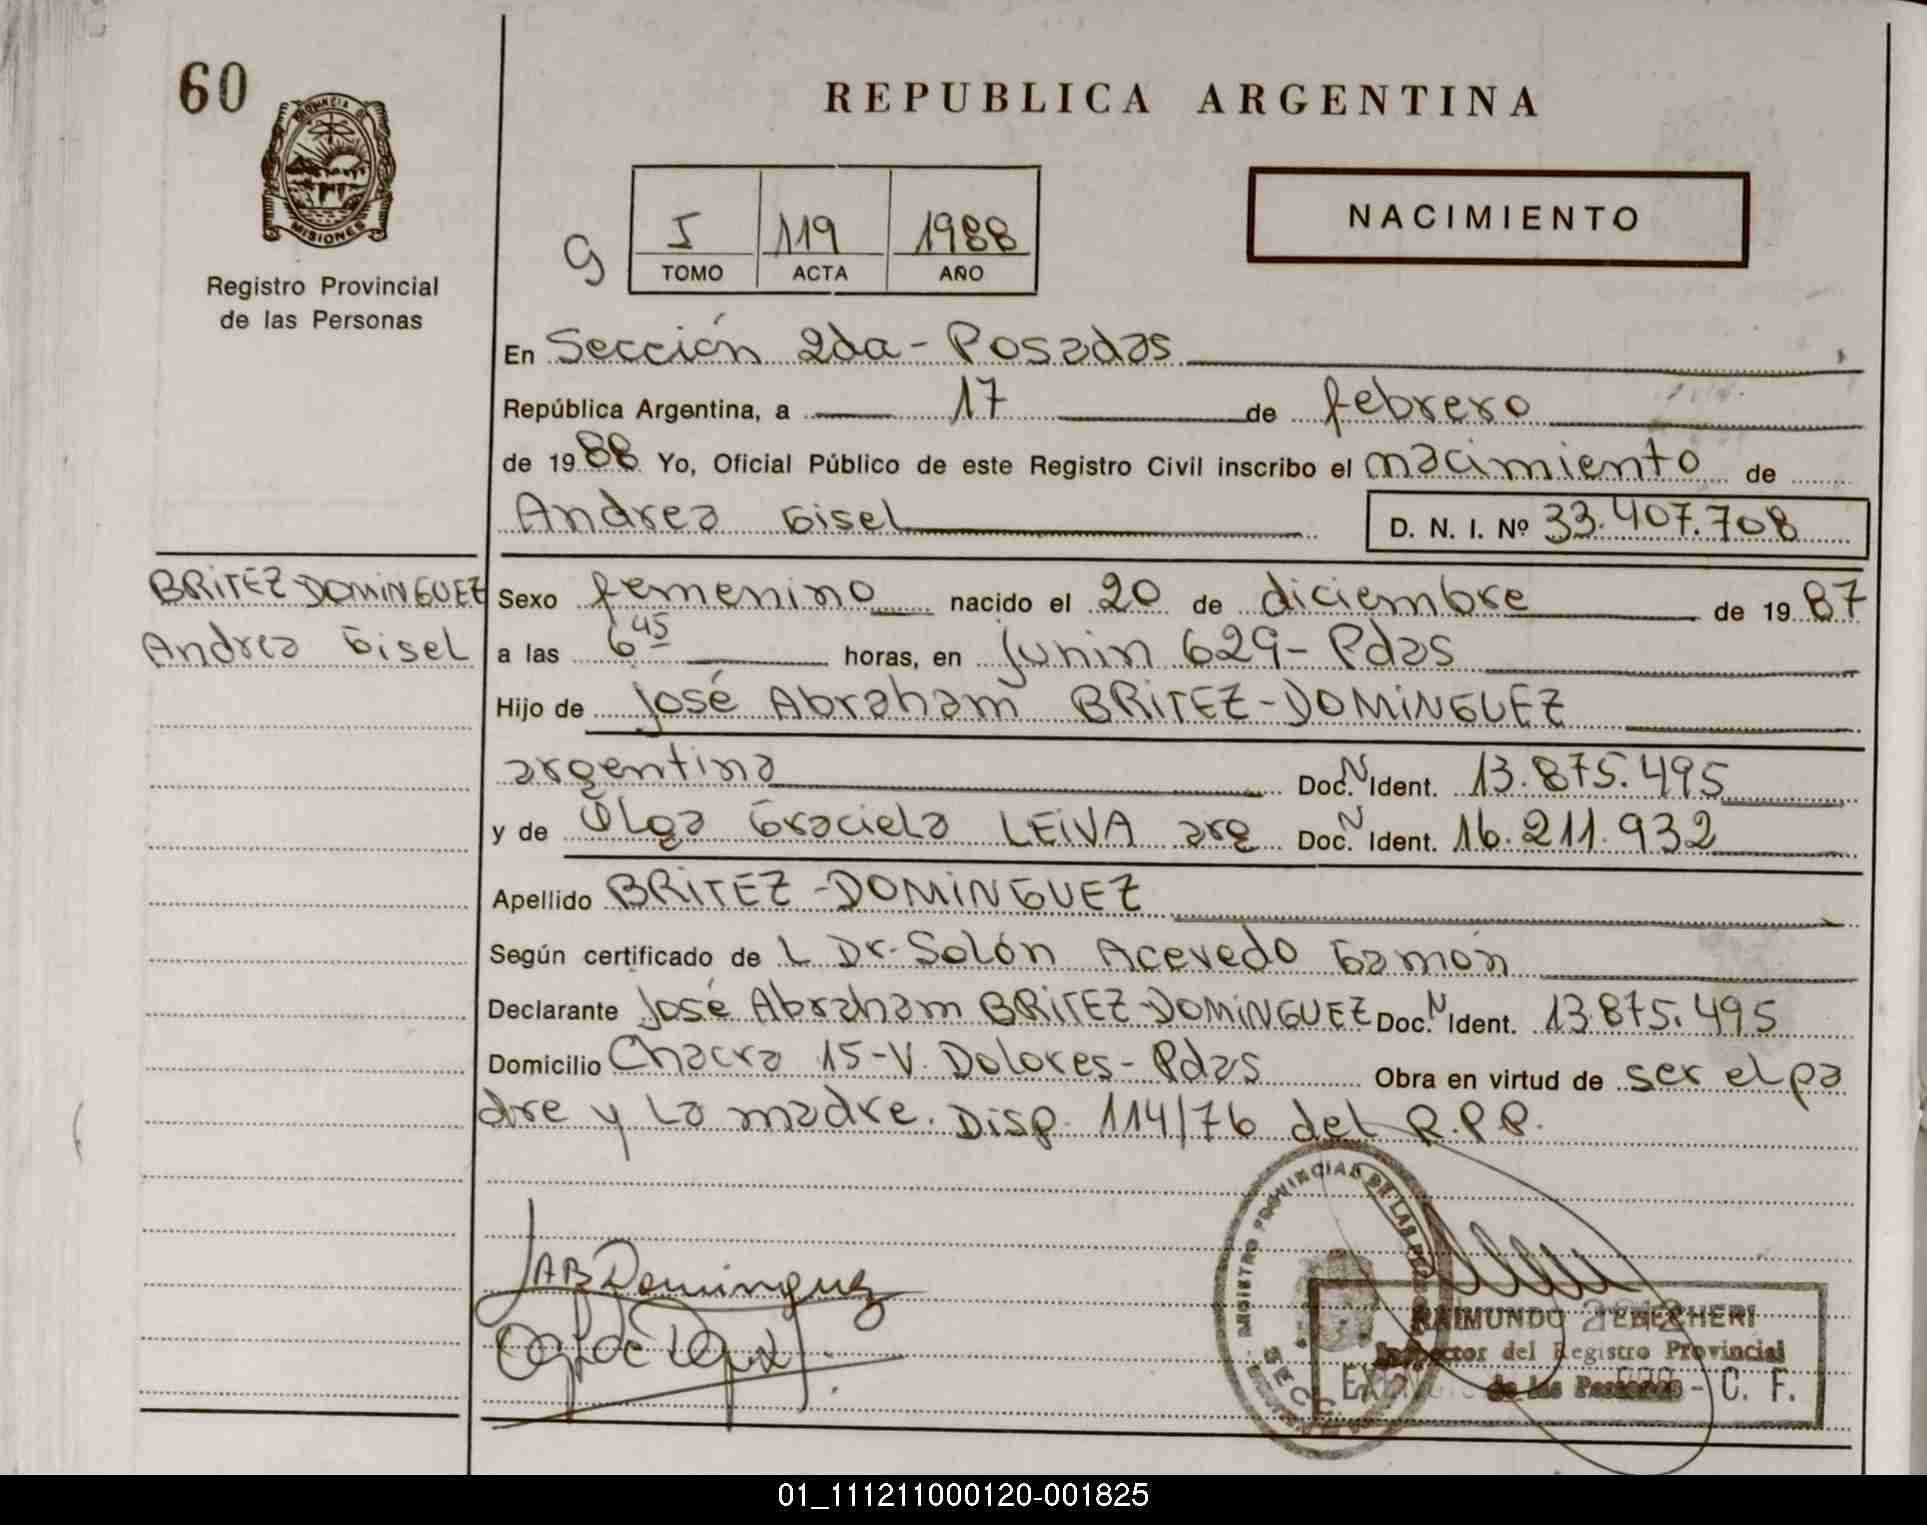 60
PROVINCIA DE
MISIONES
Registro Provincial
de las Personas
REPUBLICA ARGENTINA
NACIMIENTO
9
I 119 1988
TOMO ACTA AÑO
En Sección 2da - Posadas
República Argentina, a 17 de febrero
de 1988 Yo, Oficial Público de este Registro Civil inscribo el nacimiento de
Andrea Gisel D. N. I. Nº 33.407.708
BRITEZ-DOMINGUEZ
Andrea Gisel
Sexo femenino nacido el 20 de diciembre de 1987
a las 6 45 horas, en Junin 629 - Pdas
Hijo de José Abraham BRITEZ-DOMINGUEZ
argentina Doc. N Ident. 13.875.495
y de Olga Graciela LEIVA arg Doc. N Ident. 16.211.932
Apellido BRITEZ-DOMINGUEZ
Según certificado de L Dr. Solón Acevedo Gamón
Declarante José Abraham BRITEZ-DOMINGUEZ Doc. N Ident. 13.875.495
Domicilio Chacra 15 - V. Dolores - Pdas Obra en virtud de ser el pa
dre y la madre. Disp. 114/76 del R.P.P.
JAB Dominguez
REGISTRO PROVINCIAL DE LAS
SECC
RAIMUNDO
Inspector del Registro Provincial
de las Personas - C. F.
01_111211000120-001825